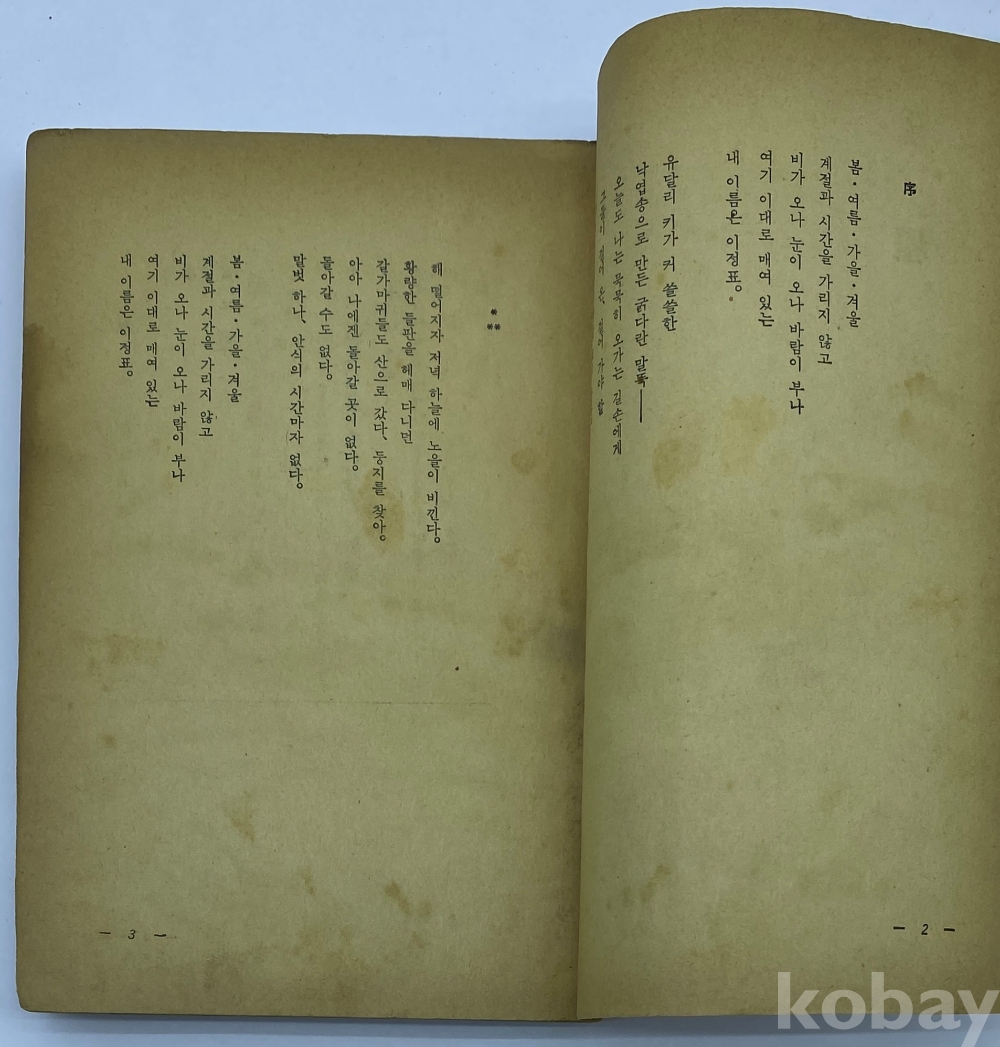 序
봄·여름·가을·겨울
계절과 시간을 가리지 않고
비가 오나 눈이 오나 바람이 부나
여기 이대로 매여 있는
내 이름은 이정표。
유달리 키가 커 쓸쓸한
낙엽송으로 만든 굵다란 말뚝——
오늘도 나는 묵묵히 오가는 길손에게
— 2 —
해 떨어지자 저녁 하늘에 노을이 비낀다。
황량한 들판을 헤매 다니던
갈가마귀들도 산으로 갔다、둥지를 찾아。
아아 나에겐 돌아갈 곳이 없다。
돌아갈 수도 없다。
말벗 하나、안식의 시간마자 없다。
봄·여름·가을·겨울
계절과 시간을 가리지 않고
비가 오나 눈이 오나 바람이 부나
여기 이대로 매여 있는
내 이름은 이정표。
— 3 —
kobay